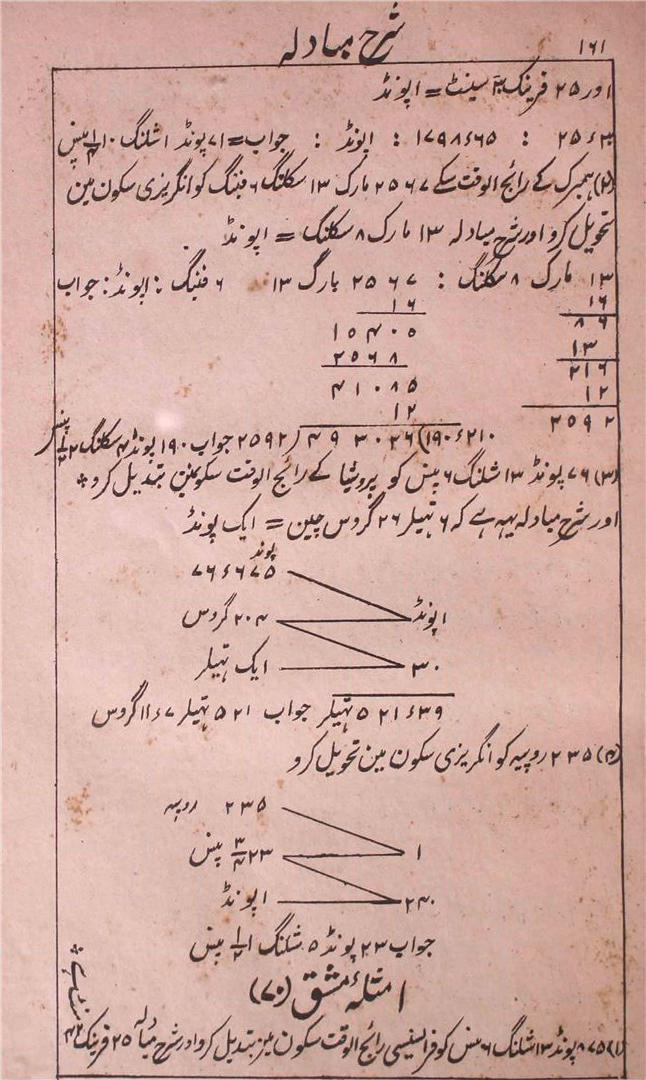 ۱۶۱
شرح مبادلہ
اور ۲۵ فرینک ۳ سینٹ = ۱ پونڈ
۲۵٫۳ : ۱۷۹۸٫۶۵ : ۱ پونڈ : جواب = ۷۱ پونڈ ۱ شلنگ ۱۰ ۱/۴ پنس
(۲) ہمبرگ کے رائج الوقت سکے ۲۵۶۷ مارک ۱۳ سکلنگ ۶ فننگ کو انگریزی سکون مین
تحویل کرو اور شرح مبادلہ ۱۳ مارک ۸ سکلنگ = ۱ پونڈ
۱۳ مارک ۸ سکلنگ : ۲۵۶۷ مارک ۱۳ ۶ فننگ : ۱ پونڈ : جواب
۱۶ ۱۶
۸۶ ۱۵۴۰۵
۱۳ ۲۵۶۸
۲۱۶ ۴۱۰۸۵
۱۲ ۱۲
۲۵۹۲ ۲۵۹۲) ۴۹۳۰۲۶ (۱۹۰٫۲۱۰ جواب ۱۹۰ پونڈ ۴ سکلنگ ۲ ۱/۲ پنس
(۳) ۷۶ پونڈ ۱۳ شلنگ ۶ پنس کو پروشیا کے رائج الوقت سکونمین تبدیل کرو *
اور شرح مبادلہ یہہ ہے کہ ۶ تہیلر ۲۶ گروس چین = ایک پونڈ
پونڈ
۷۶٫۶۷۵
۱ پونڈ ۲۰۴ گروس
۳۰ ایک تہیلر
۵۲۱٫۳۹ تہیلر جواب ۵۲۱ تہیلر ۱۱٫۷ گروس
(۴) ۲۳۵ روپیہ کو انگریزی سکون مین تحویل کرو
۲۳۵ روپیہ
۱ ۲۳ ۳/۴ پنس
۲۴۰ ۱ پونڈ
جواب ۲۳ پونڈ ۵ شلنگ ۱ ۱/۲ پنس
امثلۂ مشق (۷۰)
(۱) ۸۷۵ پونڈ ۱۳ شلنگ ۶ پنس کو فرانسیسی رائج الوقت سکون مین تبدیل کرو اور شرح مبادلہ ۲۵ فرینک ۴۲